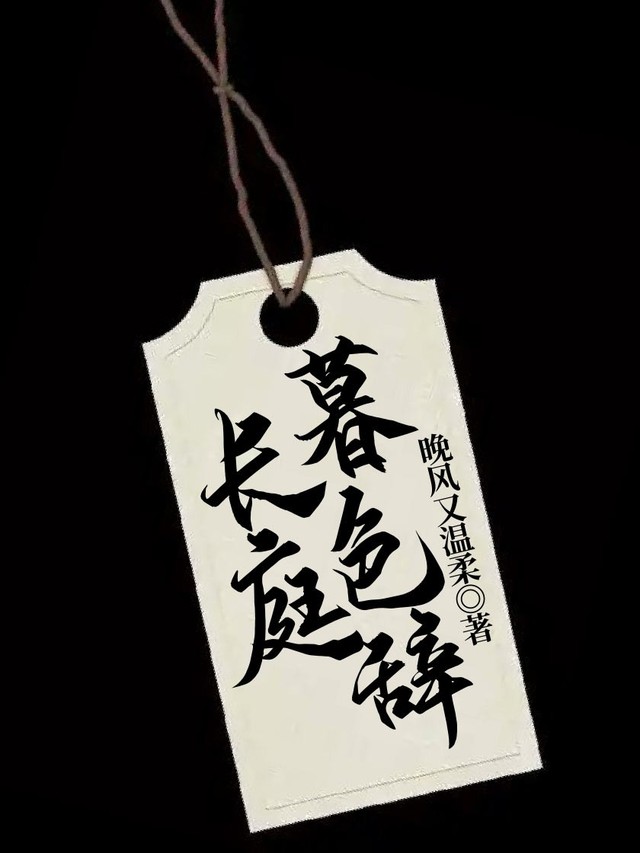 暮色辞
长庭
晚风又温柔◎著